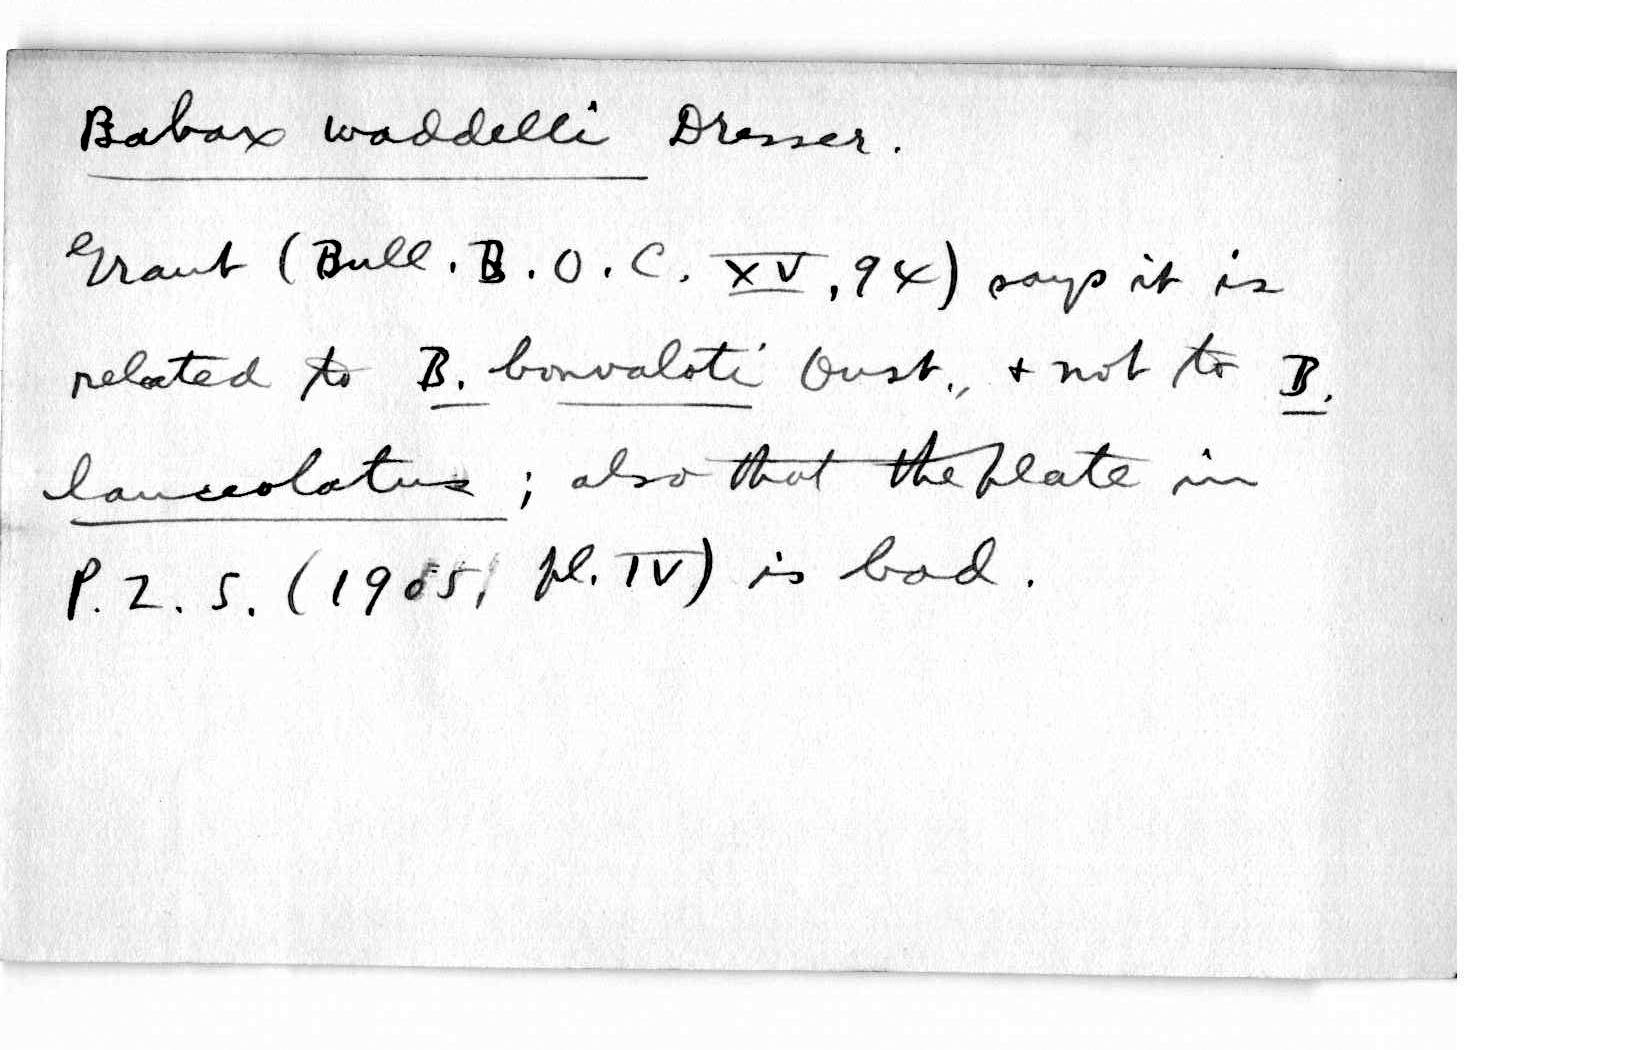 Babax waddelli Dresser.
Grant (Bull. B. O. C. XV, 94) says it is
related to B. bonvaloti Oust., + not to B.
lanceolatus ; also that the plate in
P. Z. S. (1905, pl. IV) is bad.